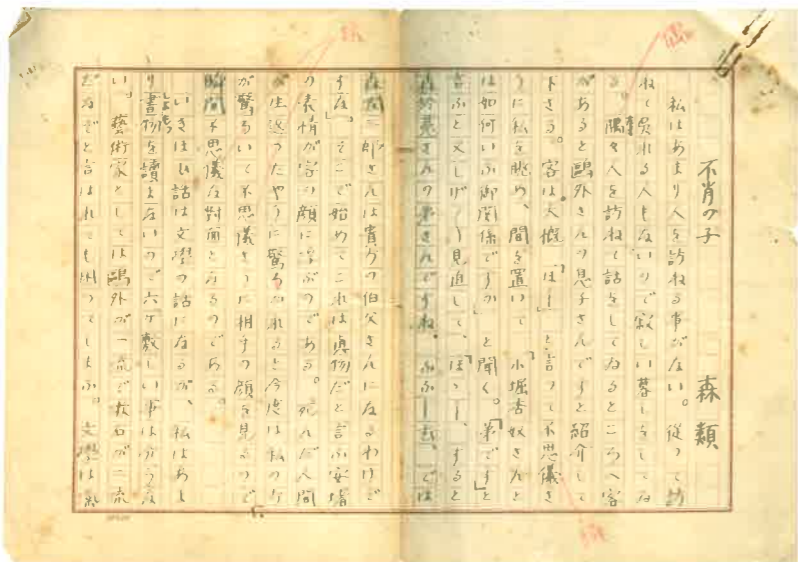 不肖の子
森類
私はあまり人を訪ねる事がない。従つて訪
ねて呉れる人もないので寂しい暮しをしてゐ
る。隅々人を訪ねて話をしてゐるところへ客
があると鷗外さんの息子さんですと紹介して
下さる。客は大概「ほー」と言つて不思議さ
うに私を眺め、間を置いて「小堀杏奴さんと
は如何いふ御関係ですか」と聞く。「弟です」と
言ふと又しげ〳〵見直して、「ほつー、すると
さんの弟さんですね、ふふーむ、では
森 郎さんは貴方の伯父さんになるわけで
すな」そこで始めてこれは真物だと言ふ安堵
の表情が客の顔に浮ぶのである。死んだ人間
が生返つたやうに驚ろかれると今度は私の方
が驚ろいて不思儀さうに相手の顔を見るので
瞬間不思儀な対面となるのである。
いきほひ話は文學の話になるが、私はあま
り書物を讀まないので六ヶ敷しい事は分らな
い。藝術家としては鷗外が一流で漱石が二流
だなどと言はれても困つてしまふ。文學は